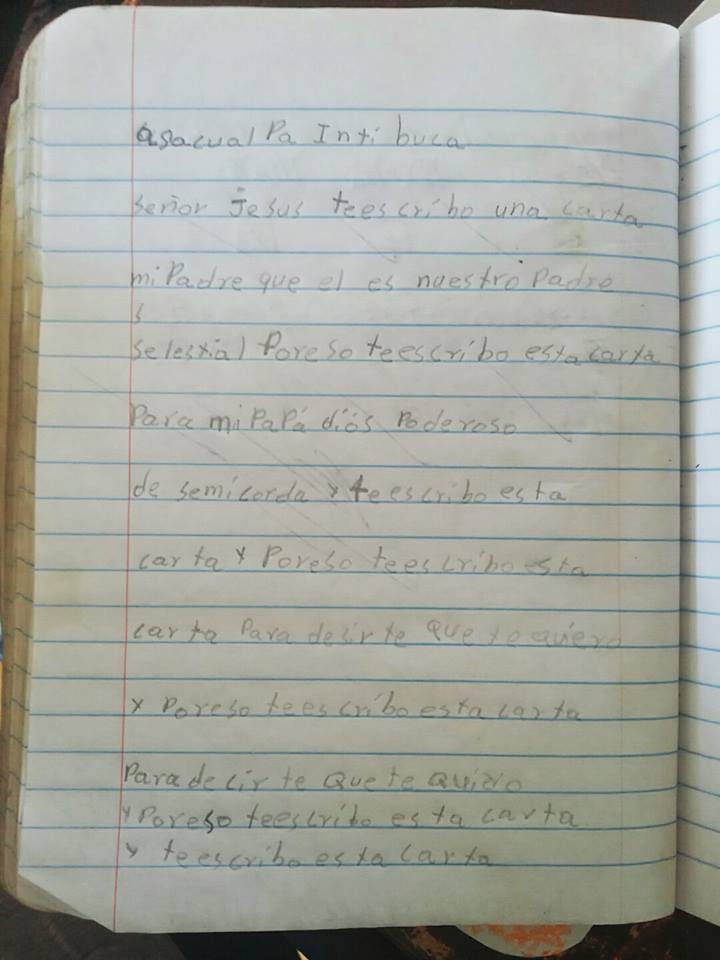 asacualPa Intibuca
señor Jesus teescribo una carta
mi Padre que el es nuestro padre
s
selestial Poreso teescribo esta carta
Para mi PaPá diós Poderoso
de semicorda y teescribo esta
carta y Poreso teescribo esta
carta Para desirte que te quiero
y Poreso teescribo esta carta
Para decirte que te quiero
y Poreso teescribo esta carta
y teescribo esta carta